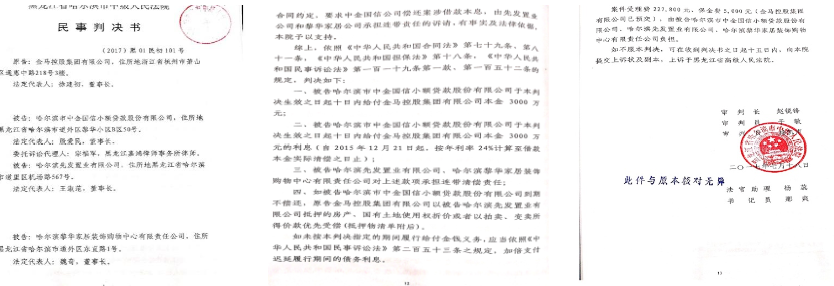 黑龙江省哈尔滨市中级人民法院
民事判决书
(2017)黑01民初101号
原告:金马控股集团有限公司,住所地浙江省杭州市萧山
区通惠中路218号3楼。
法定代表人:徐建初,董事长。
被告:哈尔滨市中金国信小额贷款股份有限公司,住所地
黑龙江省哈尔滨市道外区黎华小区B区59号。
法定代表人:,董事长。
委托诉讼代理人:宗振军,黑龙江嘉鸿律师事务所律师。
被告:哈尔滨先发置业有限公司,住所地黑龙江省哈尔滨
市道里区机场路567号。
法定代表人:王淑范,董事长。
被告:哈尔滨黎华家居装饰购物中心有限责任公司,住所
黑龙江省哈尔滨市道外区东直路1号。
法定代表人:魏奇,董事长。
合同约定,要求中金国信公司偿还案涉借款本息,由先发置业
公司和黎华家居公司承担连带责任的诉请,有事实及法律依据,
本院予以支持。
综上,依照《中华人民共和国合同法》第七十九条、第八
十一条,《中华人民共和国担保法》第十八条、《中华人民共和
国民事诉讼法》第一百一十九条第一款、第一百五十二条的
规定,判决如下:
一、被告哈尔滨市中金国信小额贷款股份有限公司于本判
决生效之日起十日内给付金马控股集团有限公司本金 3000 万
元;
二、被告哈尔滨市中金国信小额贷款股份有限公司于本判
决生效之日起十日内给付金马控股集团有限公司本金 3000 万
元的利息(自 2015 年 12 月 21 日起,按年利率 24%计算至借款
本金实际清偿之日止);
三、被告哈尔滨先发置业有限公司,哈尔滨黎华家居装饰
购物中心有限责任公司对上述款项承担连带清偿责任;
四、如被告哈尔滨市中金国信小额贷款股份有限公司到期
不偿还,原告金马控股集团有限公司以被告哈尔滨先发置业有
限公司抵押的房产、国有土地使用权折价或者以拍卖、变卖所
得价款优先受偿(抵押物清单附后)。
如未按本判决指定的期间履行给付金钱义务,应当依照《中
华人民共和国民事诉讼法》第二百五十三条之规定,加倍支付
迟延履行期间的债务利息。
12
案件受理费 227,800 元、保全费 5,000 元(金马控股集团
有限公司已预交),由被告哈尔滨市中金国信小额贷款股份有
限公司、哈尔滨先发置业有限公司、哈尔滨黎华家居装饰购物
中心有限责任公司负担。
如不服本判决,可在收到判决书之日起十五日内,向本院
提交上诉状及副本,上诉于黑龙江省高级人民法院。
审 判 长 赵锐锋
审 判 员 于敏
审
二〇一
此件与原本核对无异
法官助理 杨蕊
书 记 员 鄢爽
13